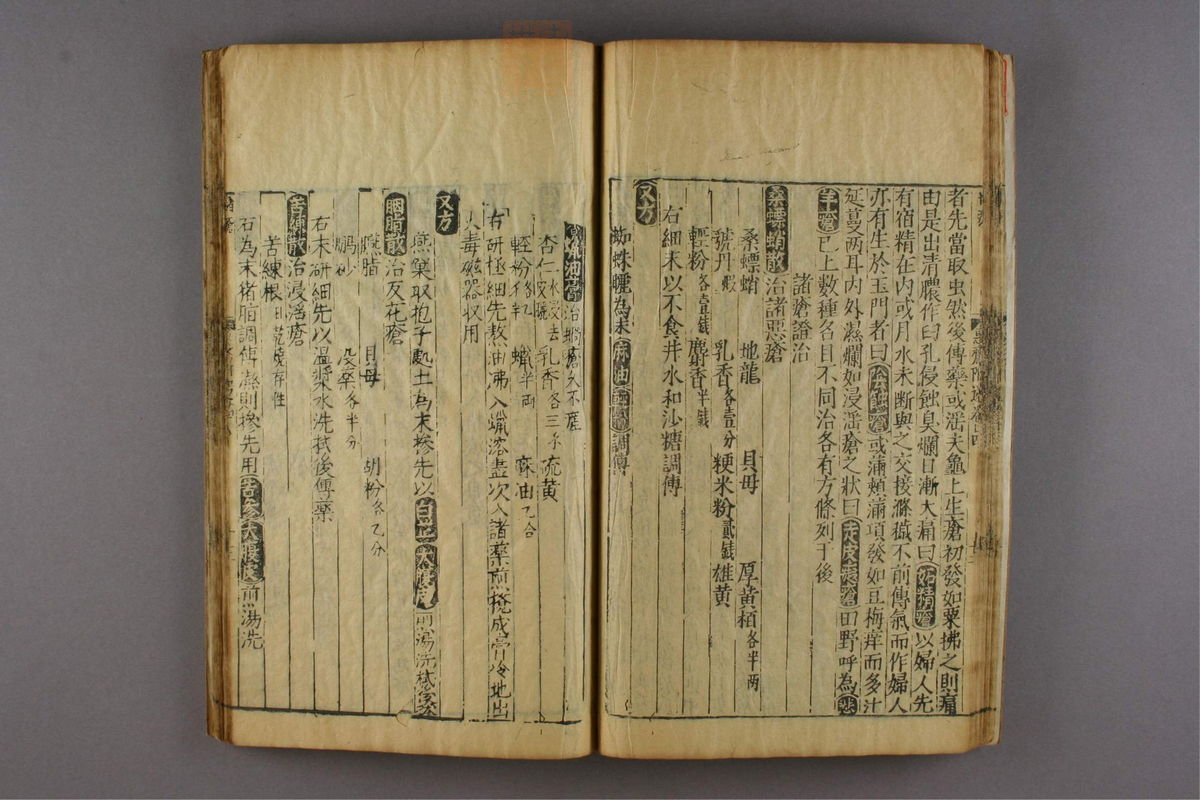 者先當取虫然後傅藥或滛夫龜上生瘡初發如粟拂之則痛
由是出清膿作臼孔侵蝕臭爛日漸大痛曰妬精瘡以婦人先
有宿精在内或月水未斷與之交接滌穢不前傳氣而作婦人
亦有生於玉門者曰陰蝕瘡或滿頰滿項發如豆梅痒而多汁
延蔓兩耳内外濕爛如浸滛瘡之狀曰走皮瘡田野呼為悲
羊瘡已上數種名目不同治各有方條列于後
諸瘡證治
桑螵蛸散治諸惡瘡
桑螵蛸 地龍 貝母 厚黄栢各半两
號丹煅 乳香各壹分 粳米粉貳錢 雄黄
輕粉各壹錢 麝香半錢
右細末以不食井水和沙糖調傅
又方
蜘蛛曬為末麻油輕粉調傅
油膏治瘡久不瘥
杏仁水浸去皮 乳香各三 硫黄
輕粉 蠟半两 麻油乙合
右研極細先熬油沸入蠟溶盡次入諸藥煎攪成膏冷地出
火毒磁器収用
又方
燕窠取抱子處土為末摻先以白芷大腹皮煎湯洗拭後
胭脂散治反花瘡
胭脂 貝母 胡粉各乙分
硼砂 没藥各半分
右末研細先以温漿水洗拭後傅藥
苦練散治浸滛瘡
苦練根日乾燒存性
右為末猪脂調傅濕則摻先用苦參大腹皮煎湯洗